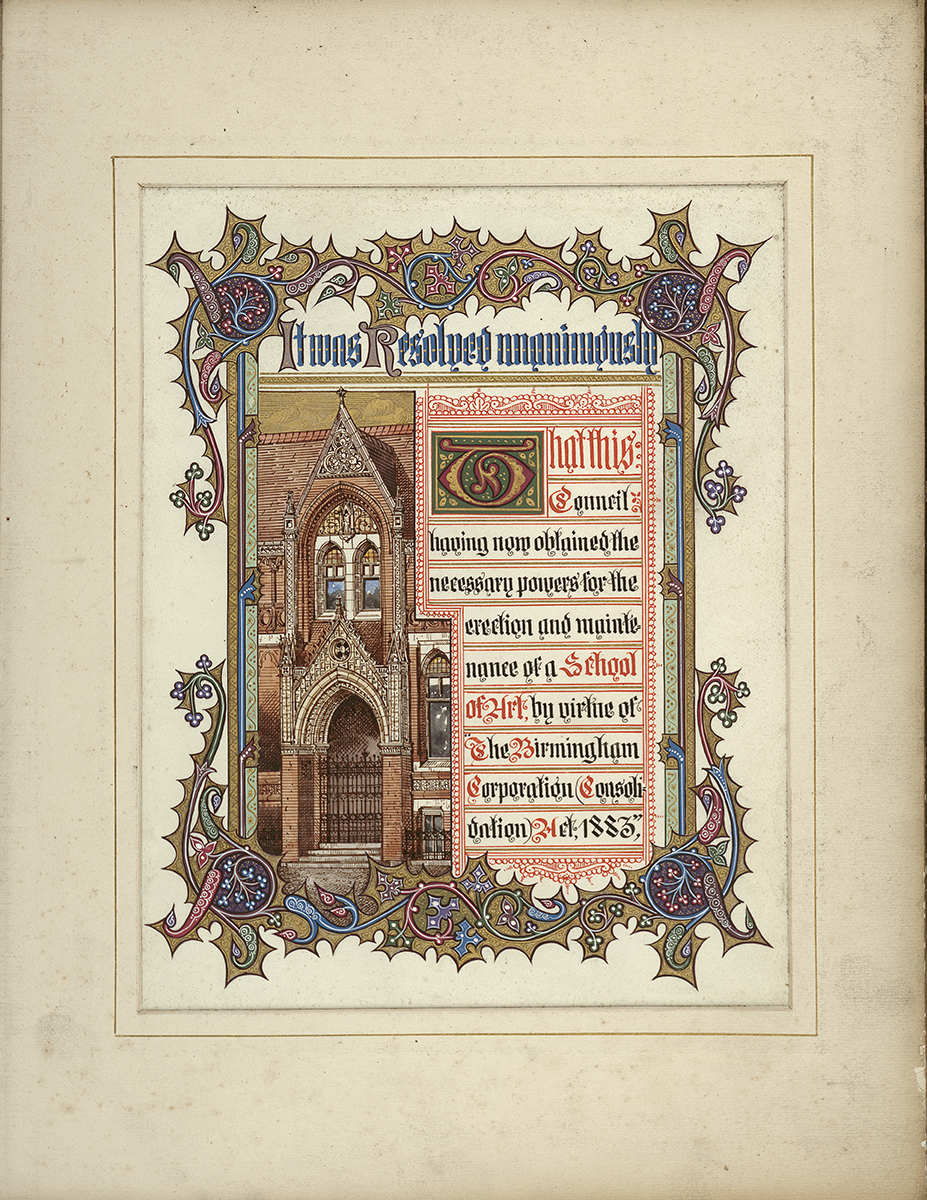 It was Resolved unanimously
That this
Council
having now obtained the
necessary powers for the
erection and mainte-
nance of a School
of Art, by virtue of
"The Birmingham
Corporation (Consoli-
dation) Act, 1883",